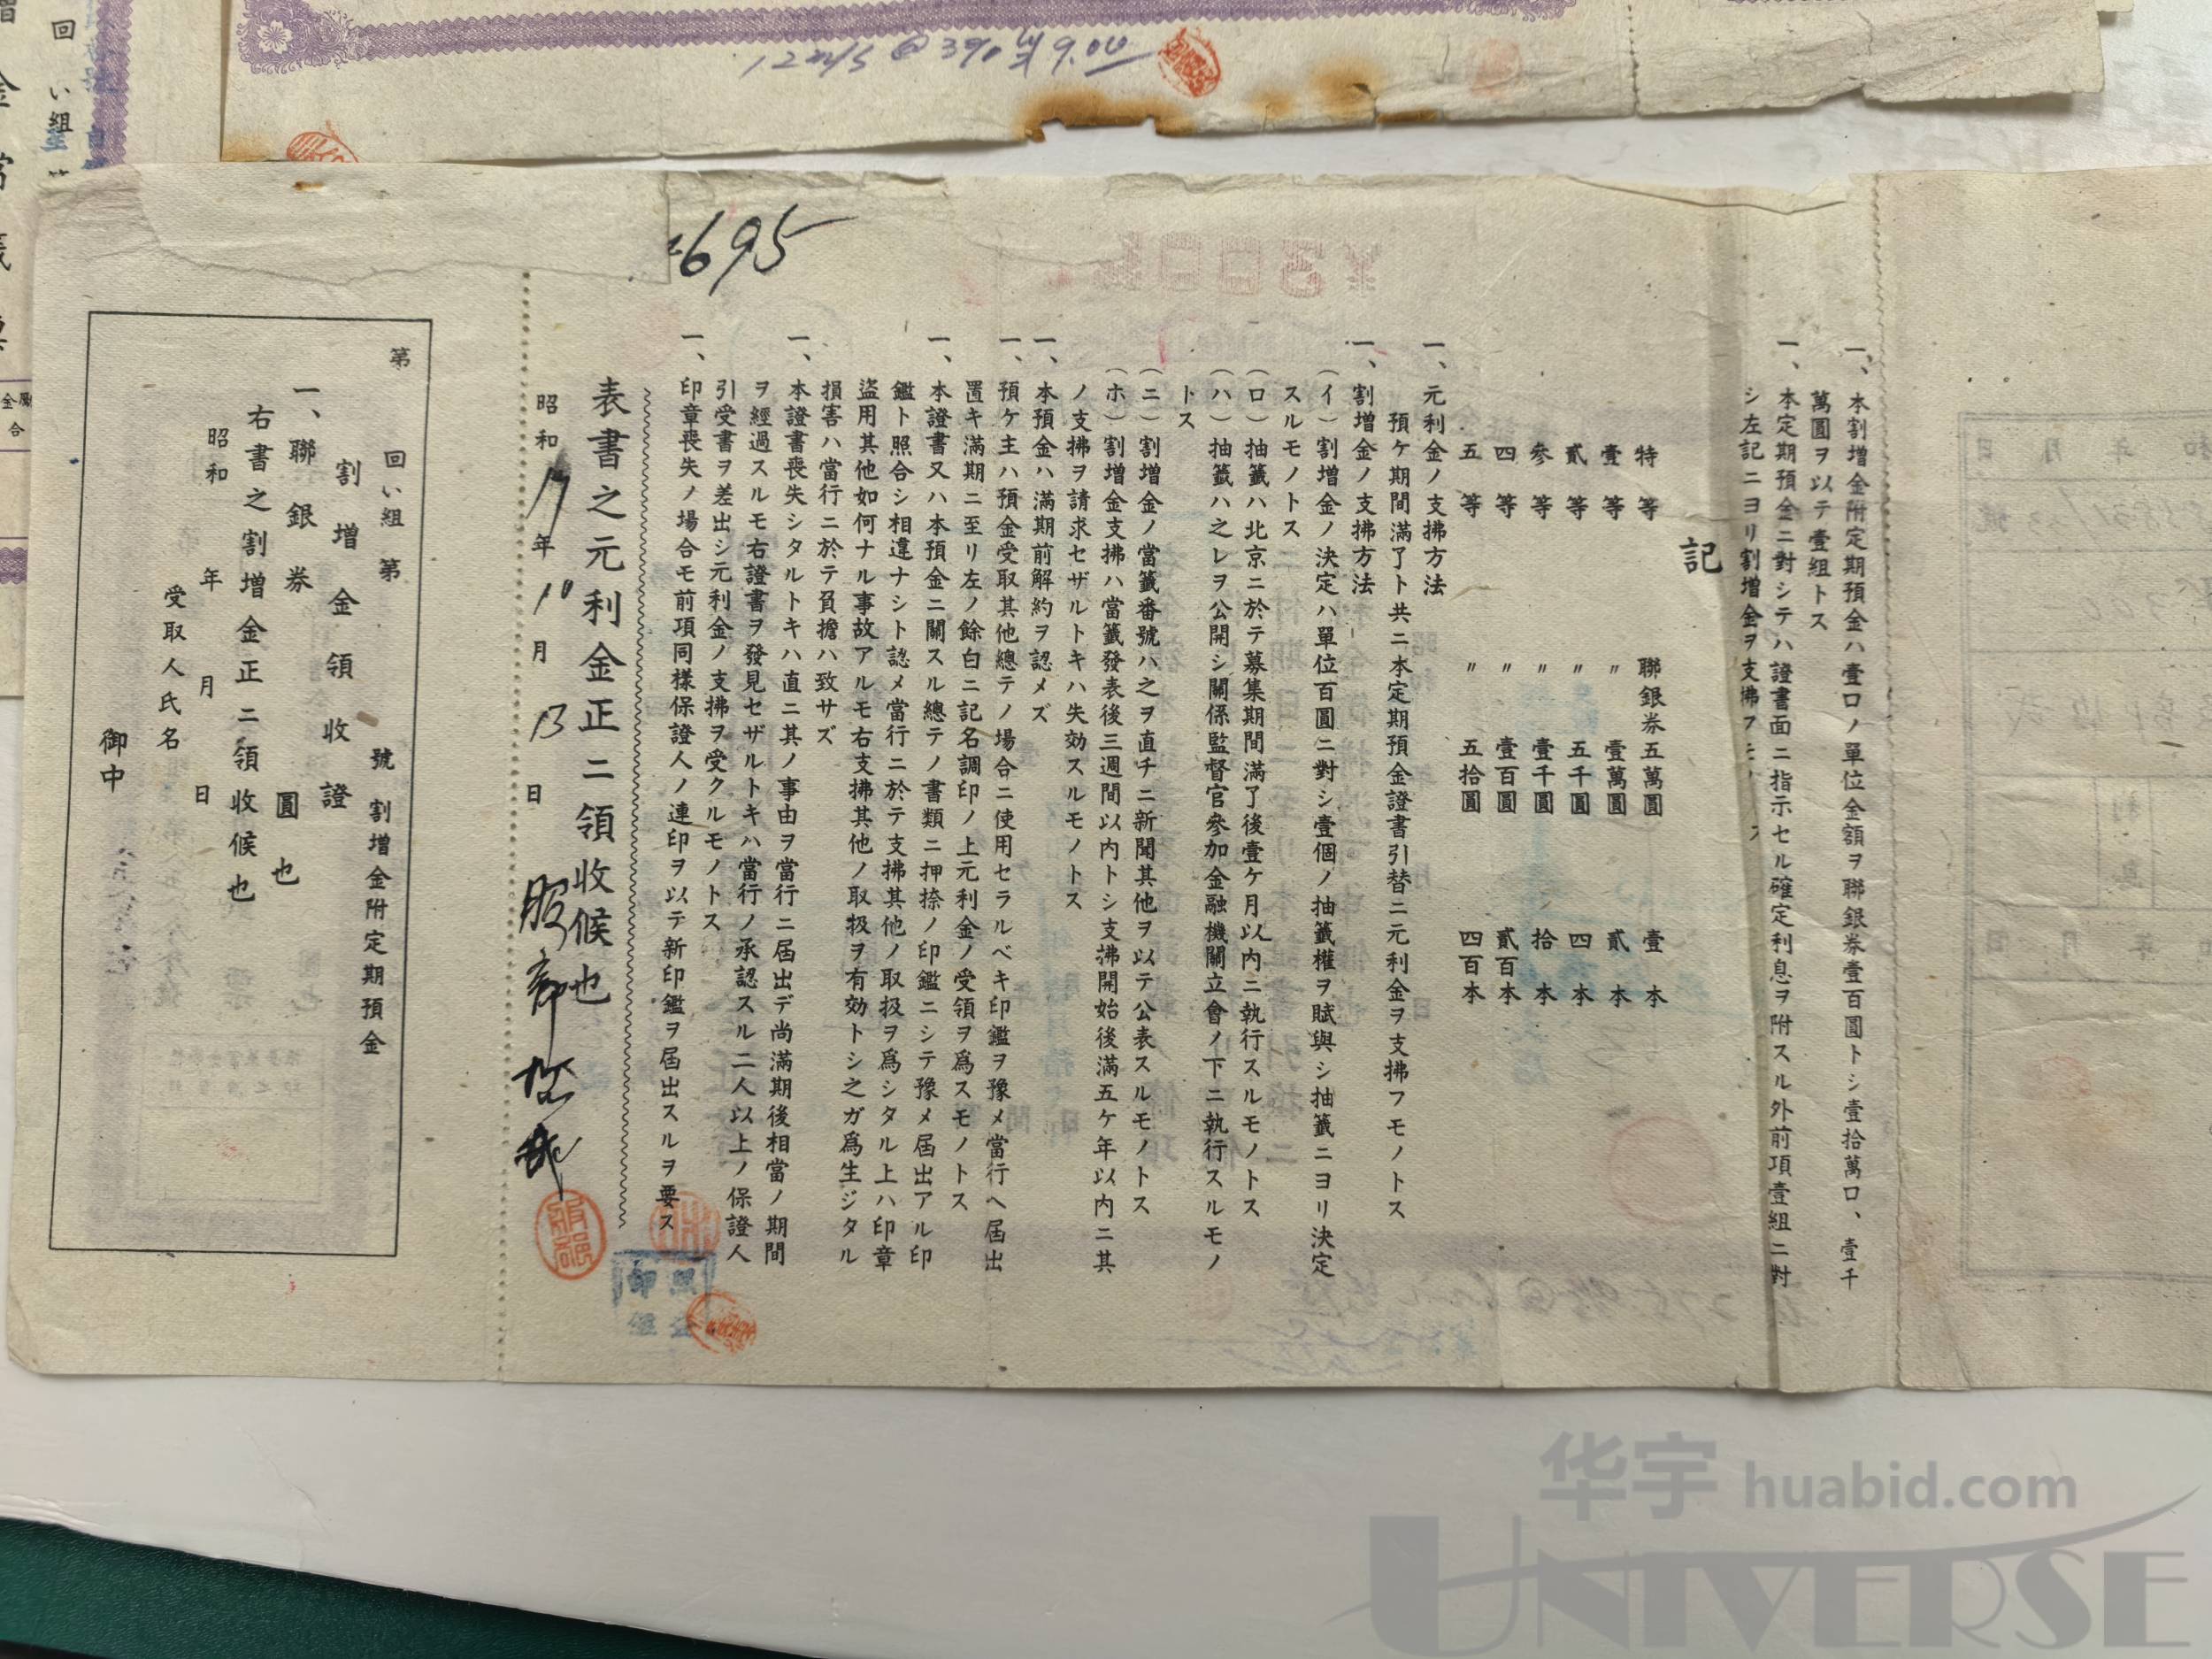 12m/s @ 390 9.00
=695
一、本割增金附定期預金ハ壹口ノ單位金額ヲ聯銀券壹百圓トシ壹拾萬口、壹千
萬圓ヲ以テ壹組トス
一、本定期預金ニ對シテハ證書面ニ指示セル確定利息ヲ附スル外前項壹組ニ對
シ左記ニヨリ割增金ヲ支拂フモノトス
記
特等 聯銀券五萬圓 壹本
壹等 〃 壹萬圓 貳本
貳等 〃 五千圓 四本
參等 〃 壹千圓 拾本
四等 〃 壹百圓 貳百本
五等 〃 五拾圓 四百本
一、元利金ノ支拂方法
預ケ期間滿了ト共ニ本定期預金證書引替ニ元利金ヲ支拂フモノトス
一、割增金ノ支拂方法
(イ)割增金ノ決定ハ單位百圓ニ對シ壹個ノ抽籤權ヲ賦與シ抽籤ニヨリ決定
スルモノトス
(ロ)抽籤ハ北京ニ於テ募集期間滿了後壹ケ月以內ニ執行スルモノトス
(ハ)抽籤ハ之レヲ公開シ關係監督官參加金融機關立會ノ下ニ執行スルモノ
トス
(ニ)割增金ノ當籤番號ハ之ヲ直チニ新聞其他ヲ以テ公表スルモノトス
(ホ)割增金支拂ハ當籤發表後三週間以內トシ支拂開始後滿五ケ年以內ニ其
ノ支拂ヲ請求セザルトキハ失効スルモノトス
一、本預金ハ滿期前解約ヲ認メズ
一、預ケ主ハ預金受取其他總テノ場合ニ使用セラルベキ印鑑ヲ豫メ當行ヘ屆出
置キ滿期ニ至リ左ノ餘白ニ記名調印ノ上元利金ノ受領ヲ爲スモノトス
一、本證書又ハ本預金ニ關スル總テノ書類ニ押捺ノ印鑑ニシテ豫メ屆出アル印
鑑ト照合シ相違ナシト認メ當行ニ於テ支拂其他ノ取扱ヲ爲シタル上ハ印章
盜用其他如何ナル事故アルモ右支拂其他ノ取扱ヲ有効トシ之ガ爲生ジタル
損害ハ當行ニ於テ負擔ハ致サズ
一、本證書喪失シタルトキハ直ニ其ノ事由ヲ當行ニ屆出デ尚滿期後相當ノ期間
ヲ經過スルモ右證書ヲ發見セザルトキハ當行ノ承認スル二人以上ノ保證人
引受書ヲ差出シ元利金ノ支拂ヲ受クルモノトス
一、印章喪失ノ場合モ前項同樣保證人ノ連印ヲ以テ新印鑑ヲ屆出スルヲ要ス
表書之元利金正ニ領收候也
昭和17年10月13日
服部
第 回い組 第 號 割增金附定期預金
割增金領收證
一、聯銀券 圓也
右書之割增金正ニ領收候也
昭和 年 月 日
受取人氏名
御中
回い組
华宇 huabid.com
UNIVERSE